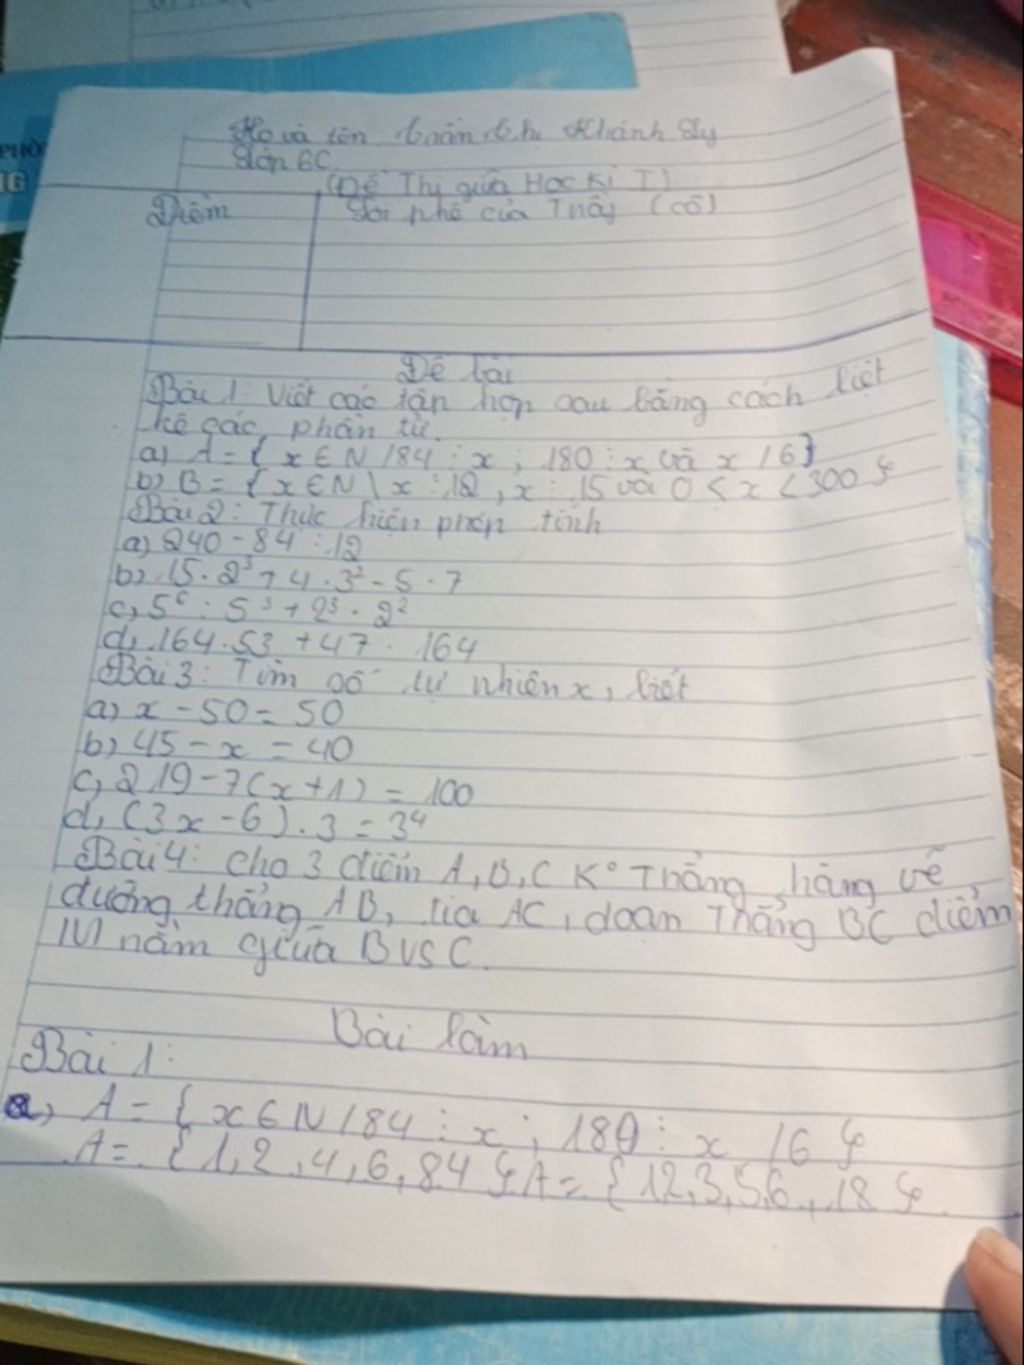 Họ và tên: Trần Thị Khánh Ly
Lớp 6C
(Đề Thi giữa Học Kì I)
Điểm
Lời phê của Thầy (cô)
Đề bài
Bài 1: Viết các tập hợp sau bằng cách liệt
kê các phần tử.
a) A = { x ∈ N / 84 ⋮ x ; 180 ⋮ x và x / 6}
b) B = {x ∈ N \ x ⋮ 12 , x ⋮ 15 và 0 < x < 300 }
Bài 2: Thực hiện phép tính
a) 240 - 84 : 12
b) 15 . 2³ + 4 . 3² - 5 . 7
c) 5⁶ : 5³ + 2³ . 2²
d) 164 . 53 + 47 . 164
Bài 3: Tìm số tự nhiên x, biết
a) x - 50 = 50
b) 45 - x = 40
c) 219 - 7(x+1) = 100
d) (3x - 6) . 3 = 3⁴
Bài 4: Cho 3 điểm A, B, C K° Thẳng hàng vẽ
đường thẳng AB, tia AC, đoạn Thẳng BC điểm
M nằm giữa B vs C.
Bài làm
Bài 1:
a) A = { x ∈ N / 84 ⋮ x ; 180 ⋮ x / 6 }
A = { 1, 2, 4, 6, 84 } A = { 12, 3, 5, 6, , 18 }
PHÒ